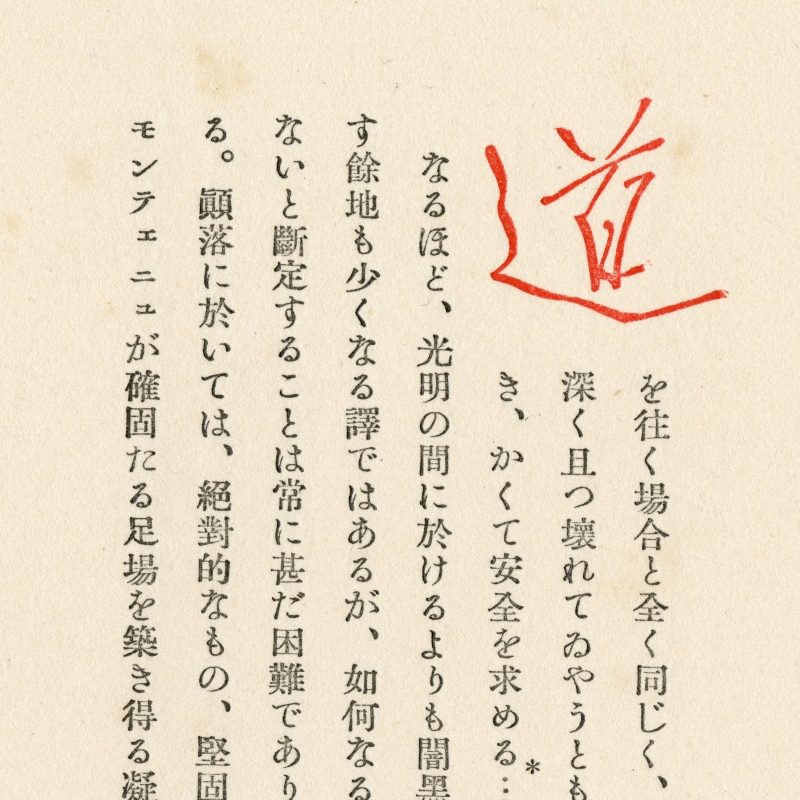 道
を往く場合と全く同じく、
深く且つ壊れてゐやうとも
き、かくて安全を求める*…
なるほど、光明の間に於けるよりも闇黑
す餘地も少くなる譯ではあるが、如何なる
ないと斷定することは常に甚だ困難であり
る。顚落に於いては、絕對的なもの、堅固
モンテェニュが確固たる足場を築き得る凝